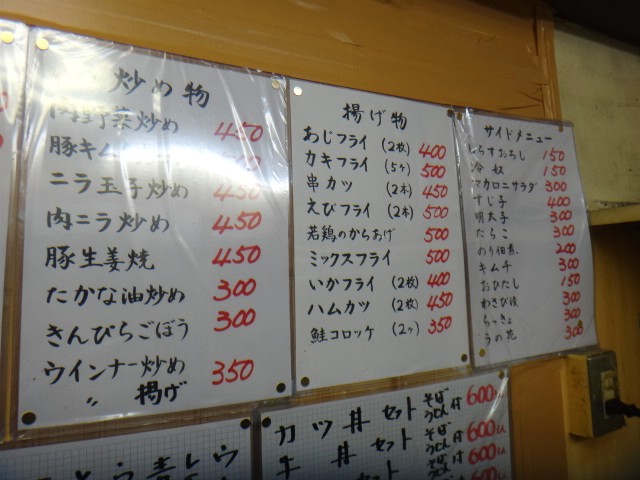 炒め物
肉野菜炒め 450
豚キム
ニラ玉子炒め 450
肉ニラ炒め 450
豚生姜焼 450
たかな油炒め 300
きんぴらごぼう 300
ウインナー炒め 350
〃 揚げ
揚げ物
あじフライ (2枚) 400
カキフライ (5ヶ) 500
串カツ (2本) 450
えびフライ (2本) 500
若鶏のからあげ 500
ミックスフライ 500
いかフライ (2枚) 400
ハムカツ (2枚) 450
鮭コロッケ (2ヶ) 350
サイドメニュー
しらすおろし 150
冷奴 150
マカロニサラダ 300
すじ子 400
明太子 300
たらこ 300
のり佃煮 200
キムチ 300
おひたし 150
わさび漬 300
らっきょ 300
うの花 300
カツ丼セット そばうどん付 600
丼セット そばうどん付 600
セット そば 600